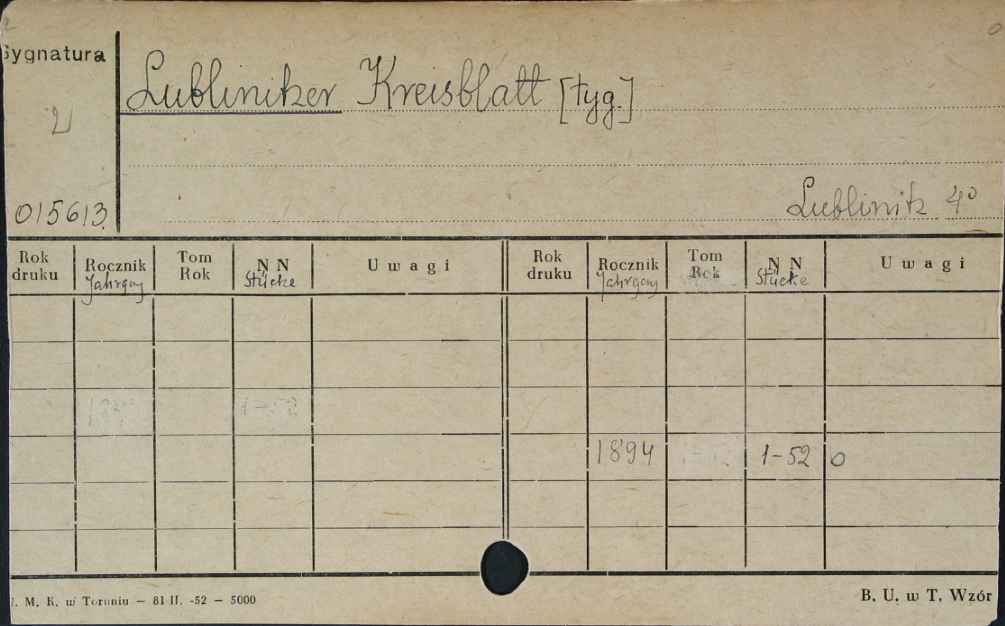 Sygnatura
Lubliniker Kreisblatt [tyg.]
015613
Lublinik 4°
Rok druku Rocznik Tom Rok N N U w a g i Rok druku Rocznik Tom Rok N N U w a g i
Jahrgang Stücke Jahrgang Stücke
1894 1-52 0
M. K. w Toruniu — 81 II. -52 — 5000
B. U. w T. Wzór